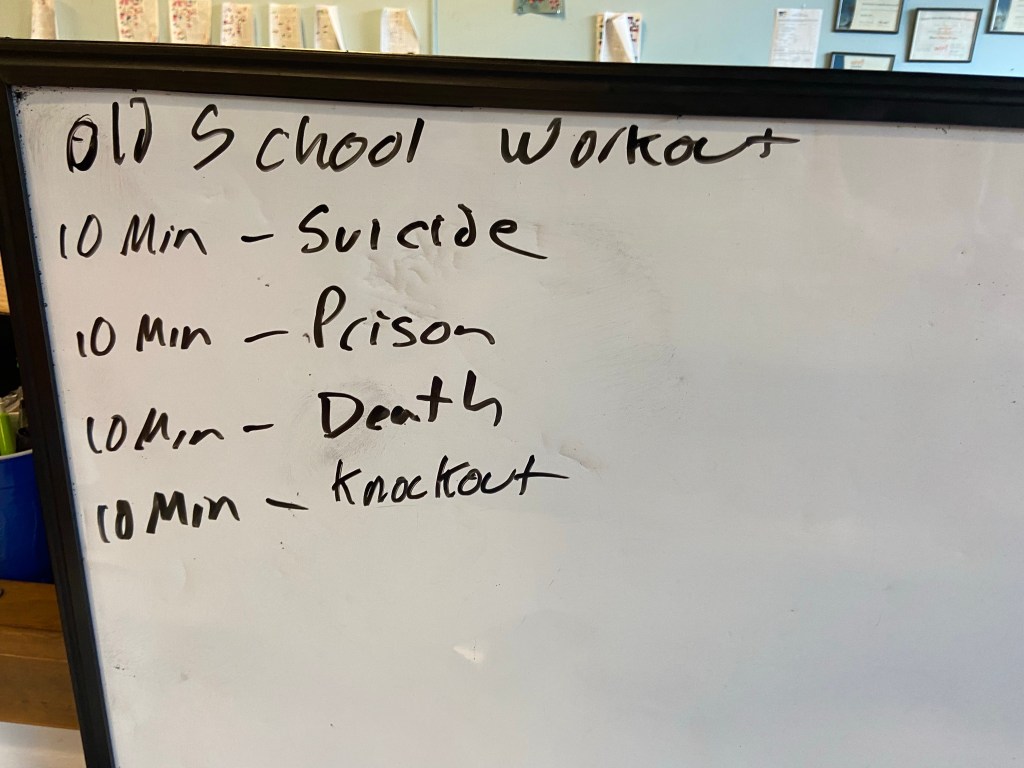 Old School Workout
10 Min - Suicide
10 Min - Prison
10 Min - Death
10 Min - Knockout